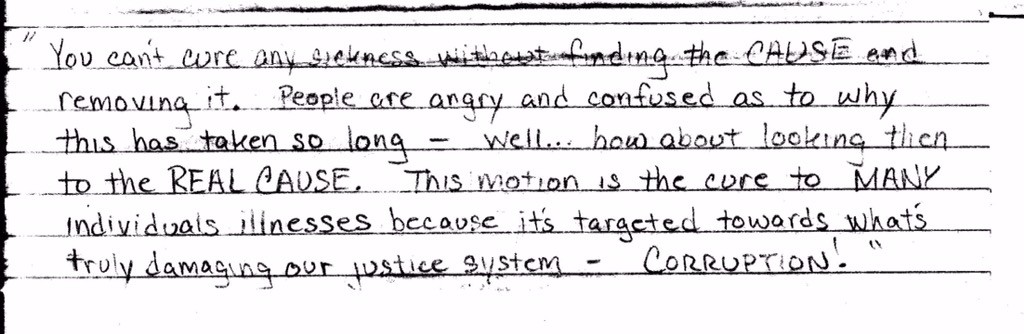 "You can't cure any sickness without finding the CAUSE and
removing it. People are angry and confused as to why
this has taken so long – well... how about looking then
to the REAL CAUSE. This motion is the cure to MANY
individuals illnesses because it's targeted towards what's
truly damaging our justice system – CORRUPTION!"